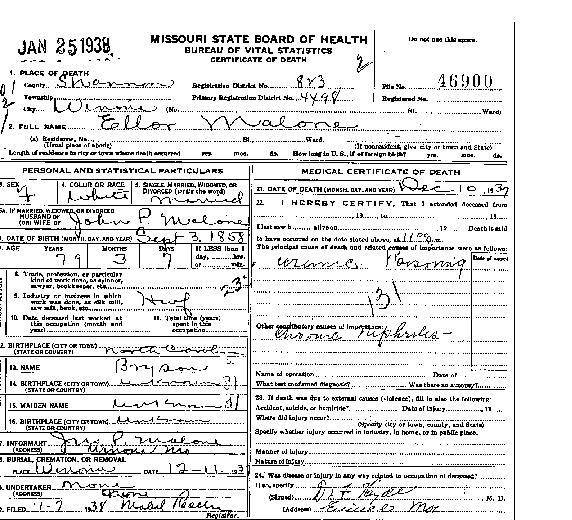 JAN 25 1938
MISSOURI STATE BOARD OF HEALTH
BUREAU OF VITAL STATISTICS
CERTIFICATE OF DEATH
Do not use this space.
1. PLACE OF DEATH
County Shannon Registration District No. 823 File No. 46900
Township Primary Registration District No. 4498 Registered No.
City Winona (No. St., Ward)
2. FULL NAME Ellor Malone
(a) Residence, No. St., Ward.
(Usual place of abode) (If nonresident, give city or town and State)
Length of residence in city or town where death occurred yrs. mos. ds. How long in U. S., if of foreign birth? yrs. mos. ds.
PERSONAL AND STATISTICAL PARTICULARS
3. SEX F 4. COLOR OR RACE White 5. SINGLE, MARRIED, WIDOWED, OR DIVORCED (write the word) Married
5A. IF MARRIED, WIDOWED, OR DIVORCED
HUSBAND OF (OR) WIFE OF John P. Malone
6. DATE OF BIRTH (MONTH, DAY, AND YEAR) Sept 3, 1858
7. AGE YEARS 79 MONTHS 3 DAYS 7 If LESS than 1 day, hrs. or min.
8. Trade, profession, or particular kind of work done, as spinner, sawyer, bookkeeper, etc.
9. Industry or business in which work was done, as silk mill, saw mill, bank, etc.
10. Date deceased last worked at this occupation (month and year) 11. Total time (years) spent in this occupation
12. BIRTHPLACE (CITY OR TOWN)
(STATE OR COUNTRY) North
13. NAME Bryson
14. BIRTHPLACE (CITY OR TOWN)
(STATE OR COUNTRY)
15. MAIDEN NAME
16. BIRTHPLACE (CITY OR TOWN)
(STATE OR COUNTRY)
17. INFORMANT Jno P. Malone
(ADDRESS) Winona Mo
18. BURIAL, CREMATION, OR REMOVAL
PLACE Winona DATE 12-11-1937
19. UNDERTAKER None
(ADDRESS)
20. FILED 1-7 38 Mabel
Registrar.
MEDICAL CERTIFICATE OF DEATH
21. DATE OF DEATH (MONTH, DAY, AND YEAR) Dec 10, 1937
22. I HEREBY CERTIFY, That I attended deceased from
, 19 , to , 19
I last saw h alive on , 19 Death is said
to have occurred on the date stated above, at
The principal cause of death and related causes of importance were as follows:
Date of onset
Uremic Poisoning
131
Other contributory causes of importance:
Chronic Nephritis
Name of operation Date of
What test confirmed diagnosis? Was there an autopsy?
23. If death was due to external causes (violence), fill in also the following:
Accident, suicide, or homicide? Date of injury , 19
Where did injury occur?
(Specify city or town, county, and State)
Specify whether injury occurred in industry, in home, or in public place.
Manner of injury
Nature of injury
24. Was disease or injury in any way related to occupation of deceased?
If so, specify
(Signed) , M. D.
(Address) Mo